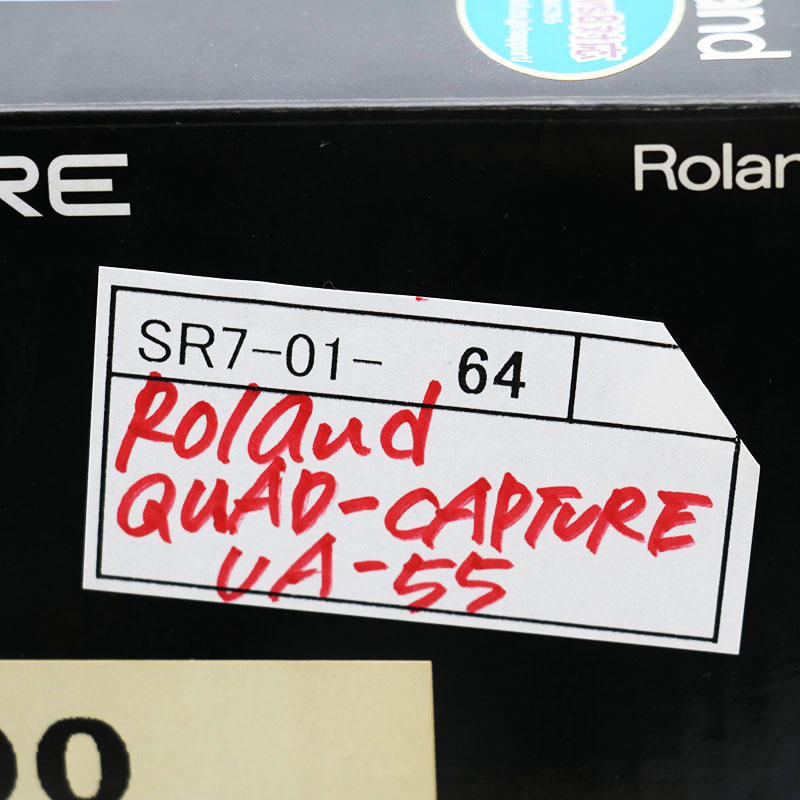 RE
Rolan
and
SR7-01- 64
Roland
QUAD-CAPTURE
UA-55
00